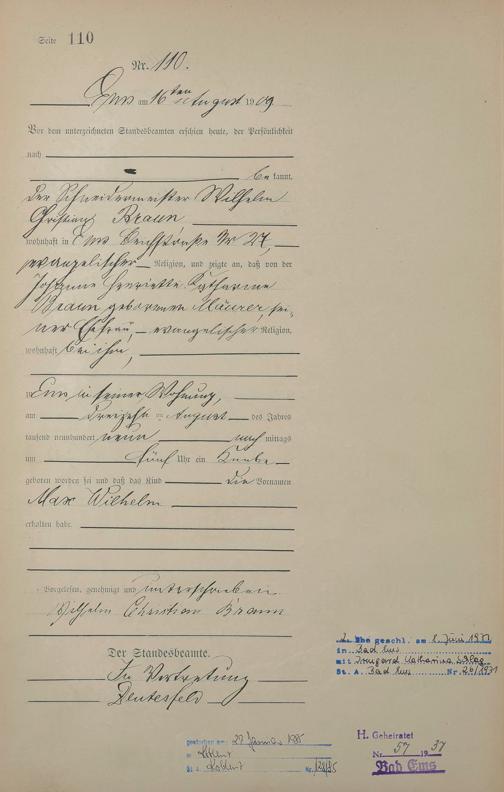 Seite 110
Nr. 110.
Ems am 16ten August 1909
Vor dem unterzeichneten Standesbeamten erschien heute, der Persönlichkeit
nach
be kannt,
der Schneidermeister Wilhelm
Christian Braun,
wohnhaft in Ems, Nr 27,
evangelischer Religion, und zeigte an, daß von der
Johanne Henriette Katharine
Braun geborenen Maurer, sei-
ner Ehefrau, evangelischer Religion,
wohnhaft bei ihm,
zu Ems in seiner Wohnung,
am dreizehnten August des Jahres
tausend neunhundert neun nach mittags
um fünf Uhr ein Knabe
geboren worden sei und daß das Kind die Vornamen
Max Wilhelm
erhalten habe.
Vorgelesen, genehmigt und unterschrieben
Wilhelm Christian Braun
Der Standesbeamte.
In Vertretung
Ehe geschl. am 1. Juni
in Bad Ems
mit Irmgard Katharina
St. A. Bad Ems Nr.
gestorben am 29 Januar 1985
in Koblenz
St A. Koblenz Nr.
H. Geheiratet
Nr. 57 1937
Bad Ems